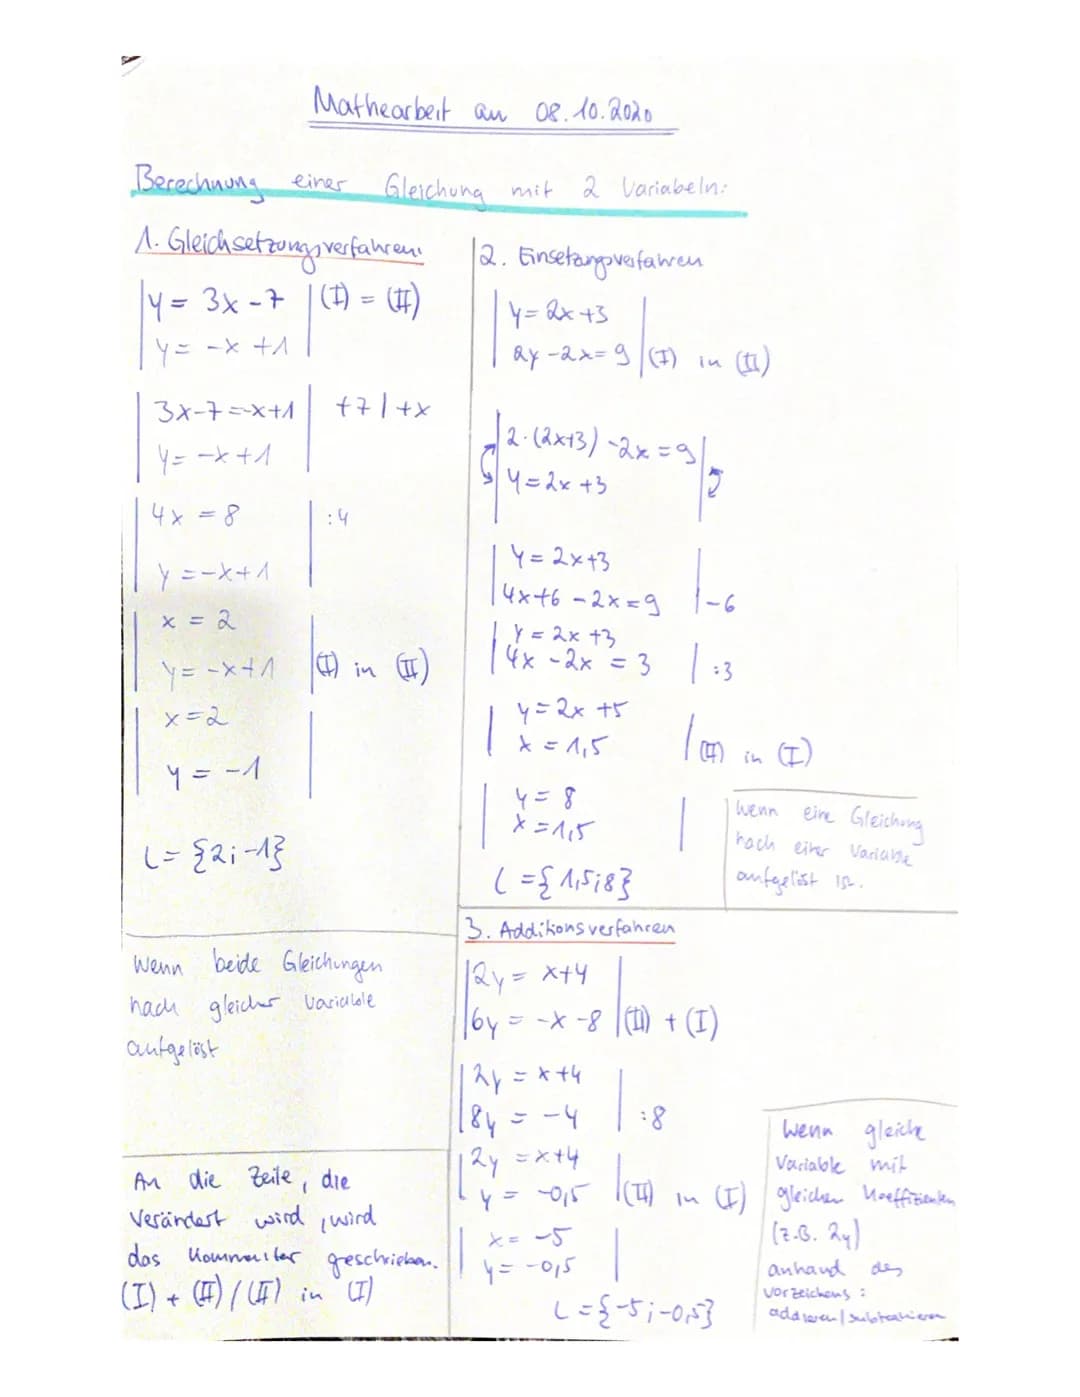 Mathearbeit am 08.10.2020
Berechnung einer Gleichung mit 2 Variabeln:
1. Gleichsetzungsverfahren:
|y = 3x - 7 | (I) = (II)
|y = -x + 1 |
|3x-7=-x+1 | +7 | +x
|y = -x + 1 |
|4x = 8 | :4
|y = -x + 1 |
|x = 2
|y = -x + 1 | (I) in (II)
|x = 2
|y = -1 |
L = {2; -1}
Wenn beide Gleichungen
nach gleicher Variable
aufgelöst
An die Zeile, die
Verändert wird, wird
das Kommentar geschrieben.
(I) + (II) / (II) in (I)
2. Einsetzungsverfahren
|y = 2x + 3 |
|2y - 2x = 9 | (I) in (II)
|2·(2x+3) - 2x = 9 |
|y = 2x + 3 |
|y = 2x + 3 |
|4x + 6 - 2x = 9 | -6
|y = 2x + 3
|4x - 2x = 3 | :3
|y = 2x + 5
|x = 1,5 | (II) in (I)
|y = 8
|x = 1,5 |
L = {1,5; 8}
Wenn eine Gleichung
nach einer Variable
aufgelöst ist.
3. Additionsverfahren
|2y = x + 4 |
|6y = -x - 8 | (II) + (I)
|2y = x + 4 |
|8y = -4 | :8
|2y = x + 4
|y = -0,5 | (II) in (I)
|x = -5
|y = -0,5 |
L = {-5; -0,5}
Wenn gleiche
Variable mit
gleichen Koeffizienten
(z.B. 2y)
anhand des
Vorzeichens:
addieren / subtrahieren